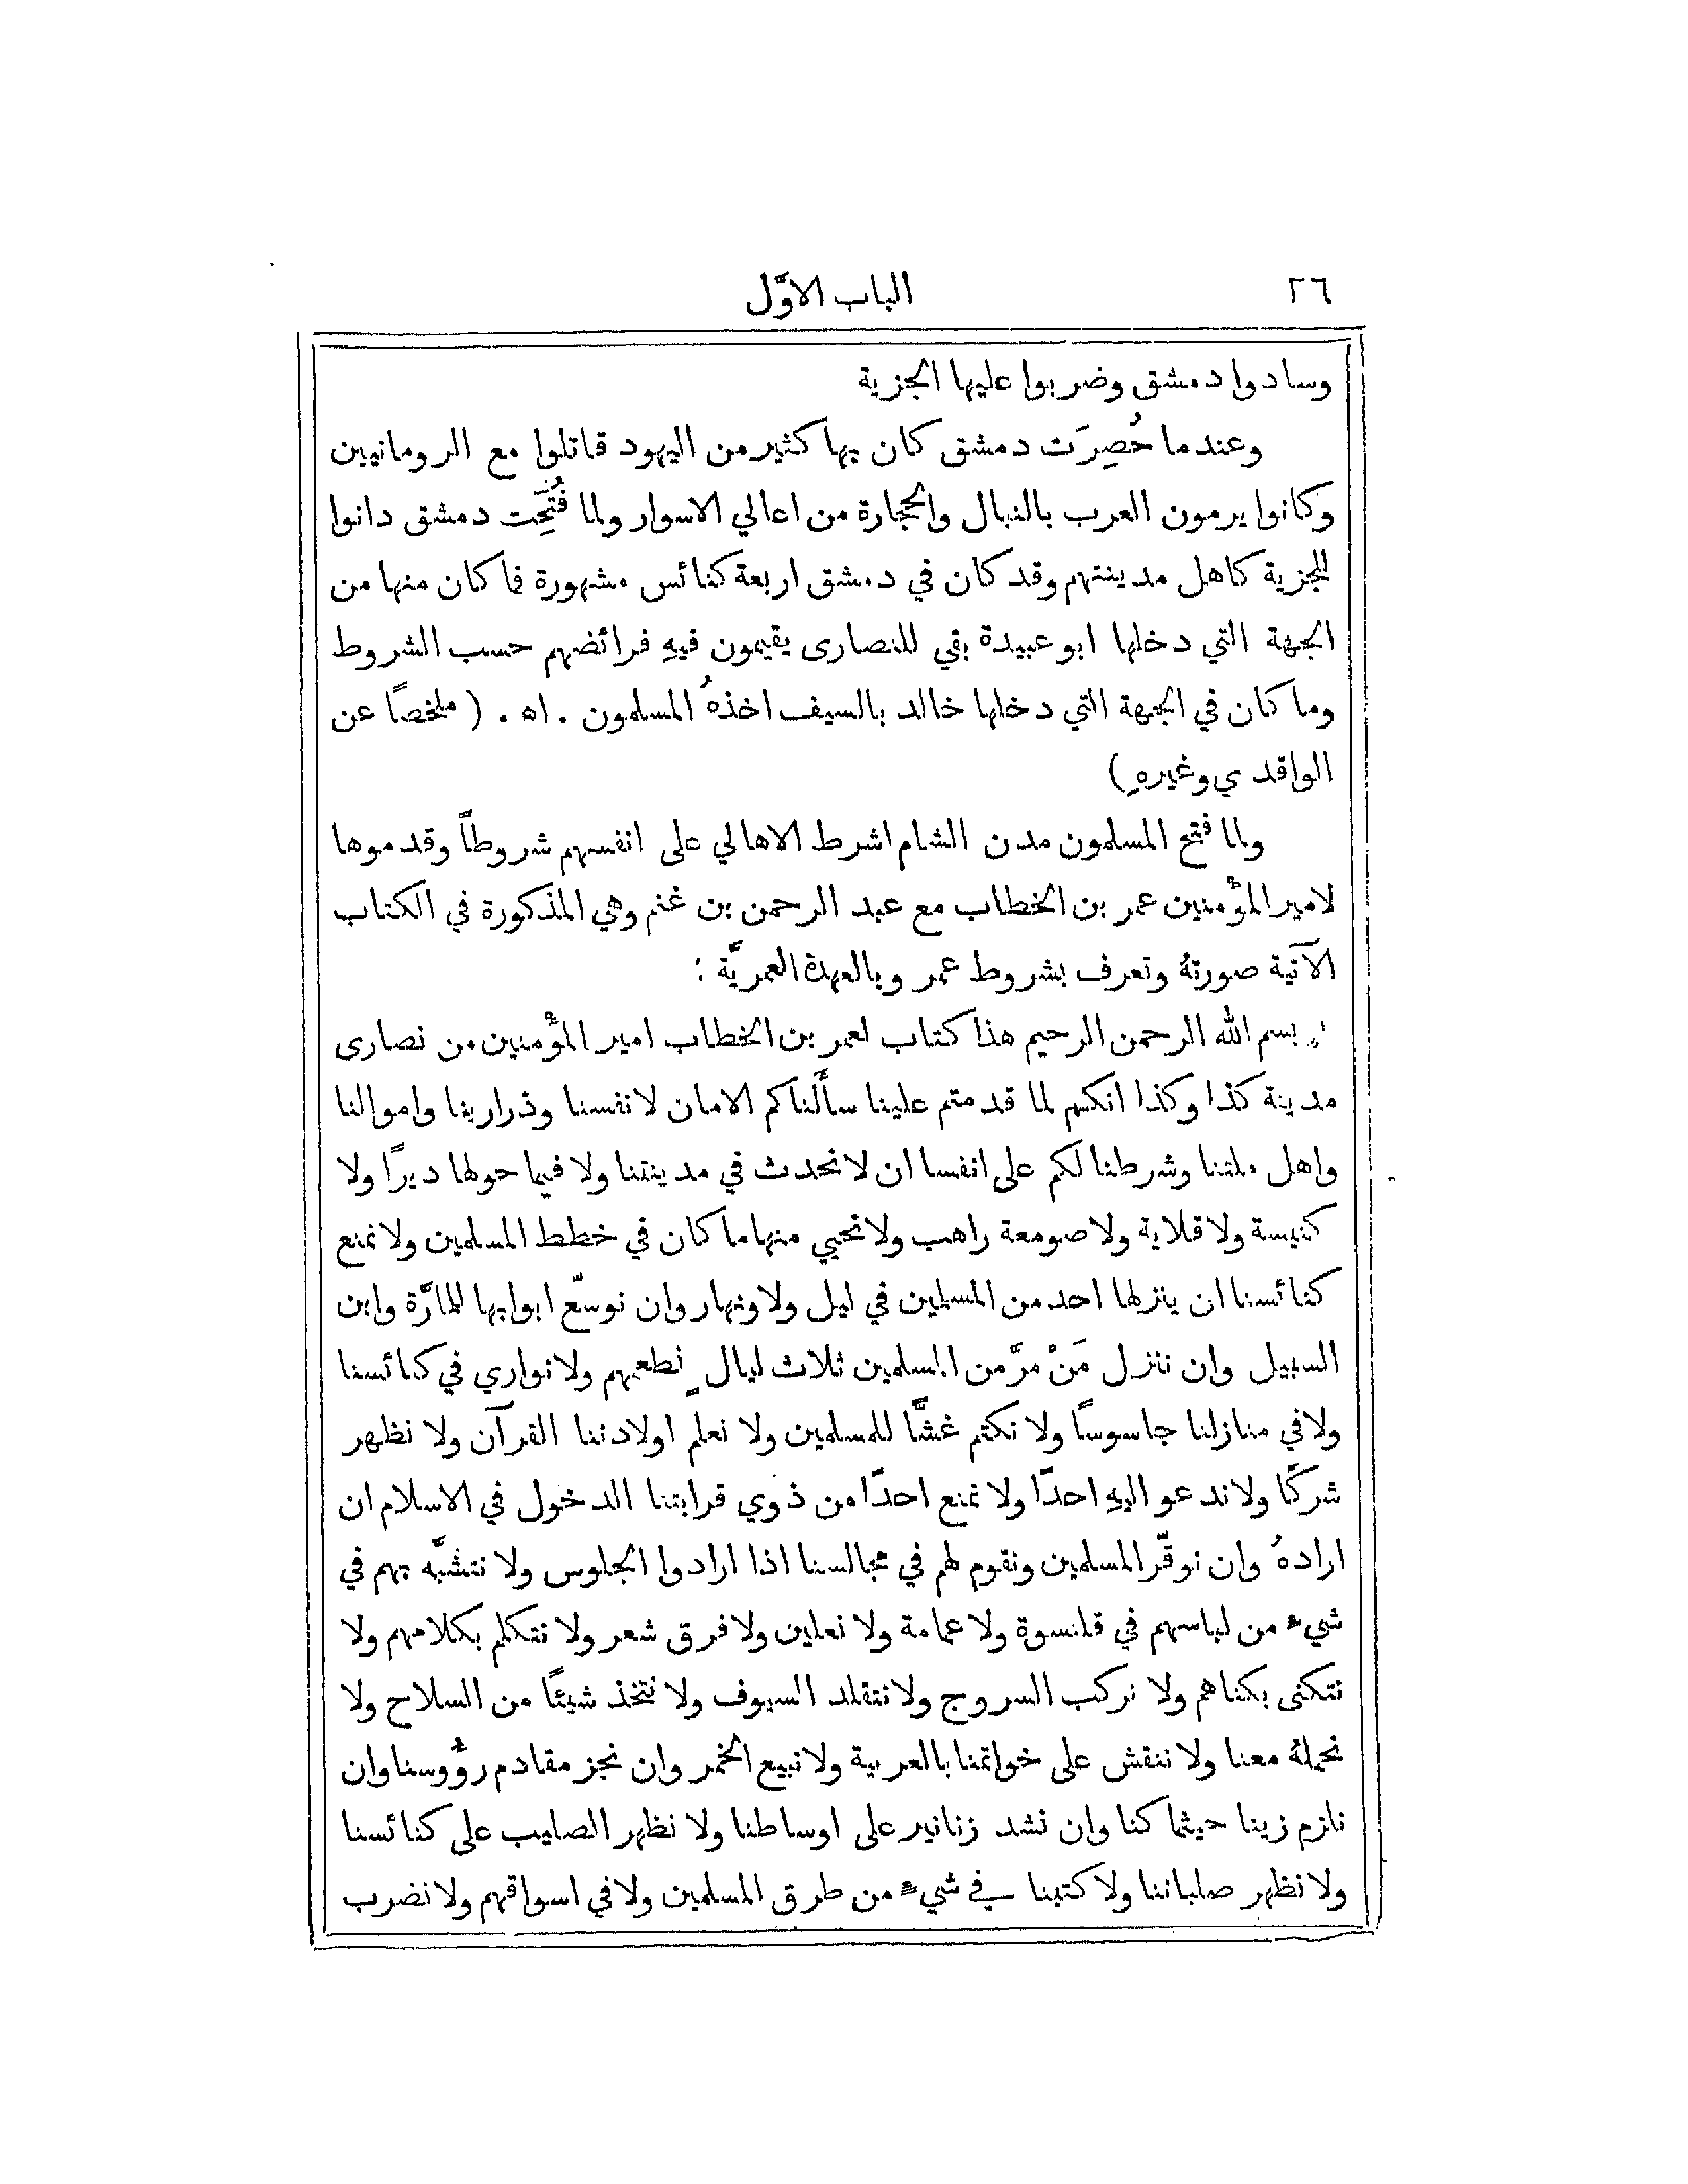 ٢٦
الباب الاوّل
وسادوا دمشق وضربوا عليها الجزية
وعندما حُصِرَت دمشق كان بها كثير من اليهود قاتلوا مع الرومانيين
وكانوا يرمون العرب بالنبال والحجارة من اعالي الاسوار ولما فُتِحَت دمشق دانوا
للجزية كاهل مدينتهم وقد كان في دمشق اربعة كنائس مشهورة فما كان منها من
الجهة التي دخلها ابو عبيدة بقي للنصارى يقيمون فيهِ فرائضهم حسب الشروط
وما كان في الجهة التي دخلها خالد بالسيف اخذهُ المسلمون . اه . ( ملخصاً عن
الواقدي وغيرهِ )
ولما فتح المسلمون مدن الشام اشرط الاهالي على انفسهم شروطاً وقدموها
لامير المؤمنين عمر بن الخطاب مع عبد الرحمن بن غنم وهي المذكورة في الكتاب
الآتية صورتهُ وتعرف بشروط عمر وبالعهدة العمريَّة :
بسم الله الرحمن الرحيم هذا كتاب لعمر بن الخطاب امير المؤمنين من نصارى
مدينة كذا وكذا انكم لما قدمتم علينا سأَلناكم الامان لانفسنا وذرارينا واموالنا
واهل ملتنا وشرطنا لكم على انفسا ان لا نحدث في مدينتنا ولا فيما حولها ديرًا ولا
كنيسة ولا قلاية ولا صومعة راهب ولا نحيي منها ما كان في خطط المسلمين ولا نمنع
كنائسنا ان ينزلها احد من المسلمين في ليل ولا ونهار وان نوسّع ابوابها للمارَّة وابن
السبيل وان ننزل مَنْ مرَّ من المسلمين ثلاث ليالٍ نطعمهم ولا نواري في كنائسنا
ولا في منازلنا جاسوساً ولا نكتم غشًّا للمسلمين ولا نعلم اولادننا القرآن ولا نظهر
شركًا ولا ندعو اليهِ احدًا ولا نمنع احدًا من ذوي قرابتنا الدخول في الاسلام ان
ارادهُ وان نوقّر المسلمين ونقوم لهم في مجالسنا اذا ارادوا الجلوس ولا نتشبَّه بهم في
شيء من لباسهم في قلنسوة ولا عمامة ولا نعلين ولا فرق شعر ولا نتكلم بكلامهم ولا
نتكنى بكناهم ولا نركب السروج ولا نتقلد السيوف ولا نتخذ شيئًا من السلاح ولا
نحملهُ معنا ولا ننقش على خواتمنا بالعربية ولا نبيع الخمر وان نجز مقادم رؤوسنا وان
نلزم زينا حيثما كنا وان نشد زنانير على اوساطنا ولا نظهر الصليب على كنائسنا
ولا نظهر صلباننا ولا كتبنا في شيء من طرق المسلمين ولا في اسواقهم ولا نضرب